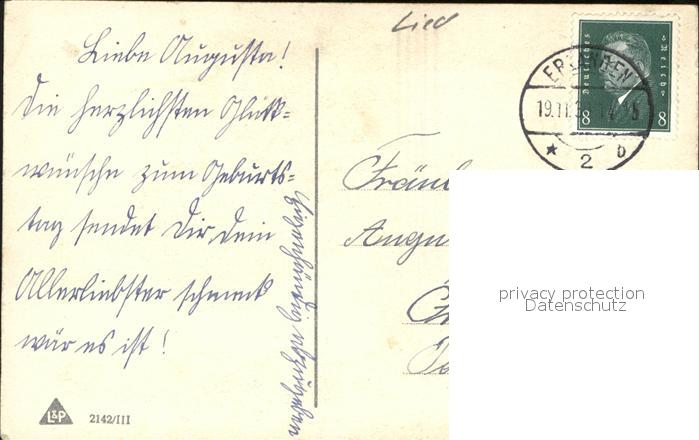 Lied
Liebe Augusta!
Die herzlichsten Glück-
wünsche zum Geburts-
tag sendet Dir Dein
Allerliebster schmeck
wär es ist!
Eigenhändig abzugeben
Deutsches Reich
8 8
ER
EN
19.11.3
2 b
Fräul
Augu
privacy protection
Datenschutz
L&P 2142/III